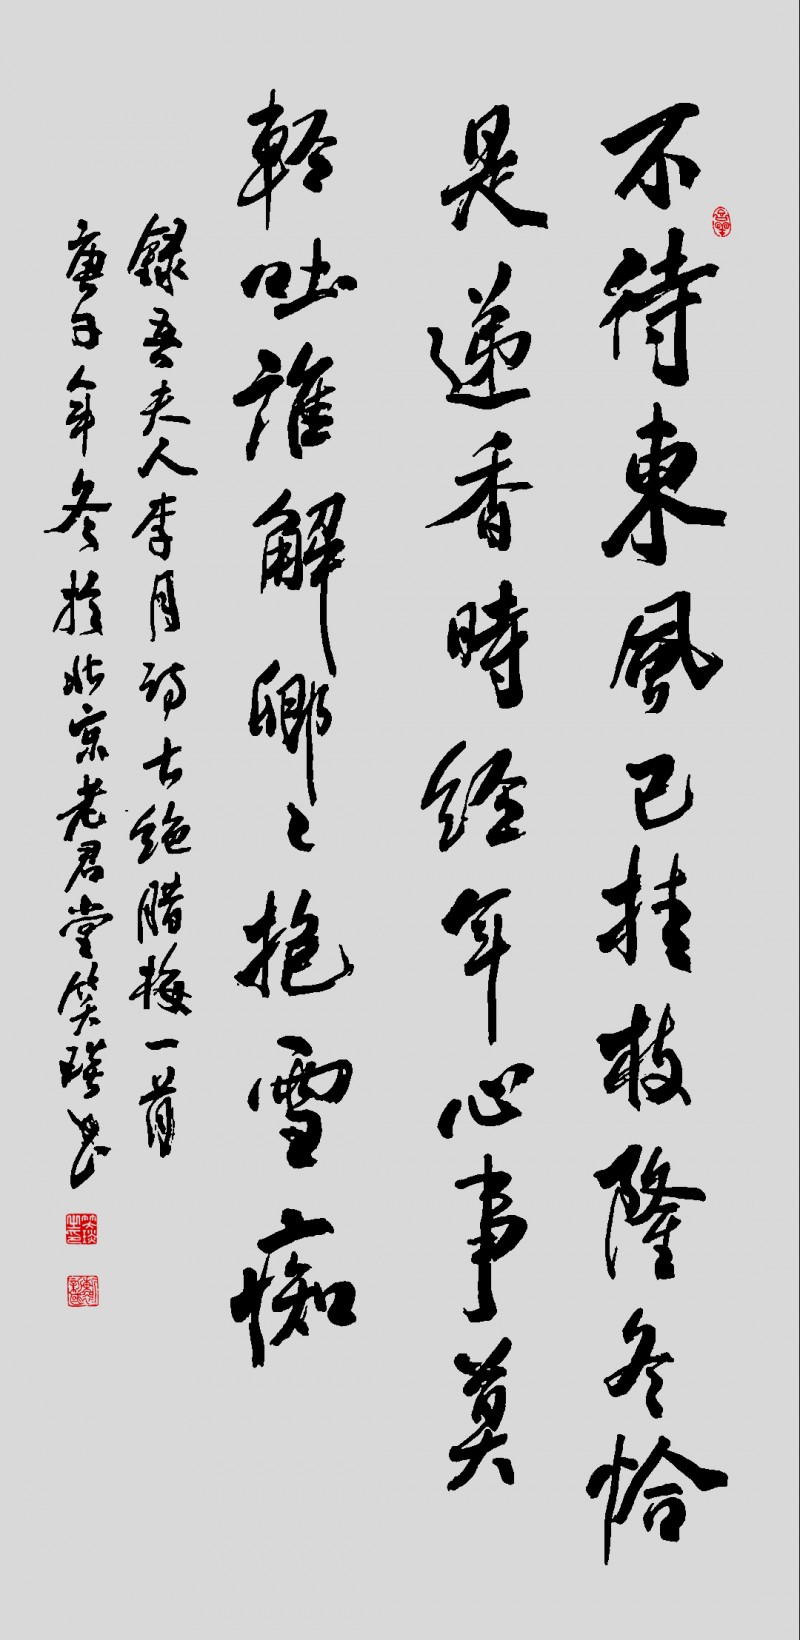 不待東風已挂枝隆冬恰
是遞香時經年心事莫
輕吐誰解卿〻抱雪痴
錄吾夫人李月詩七絶腊梅一首
庚子年冬於北京老君堂笑琰书